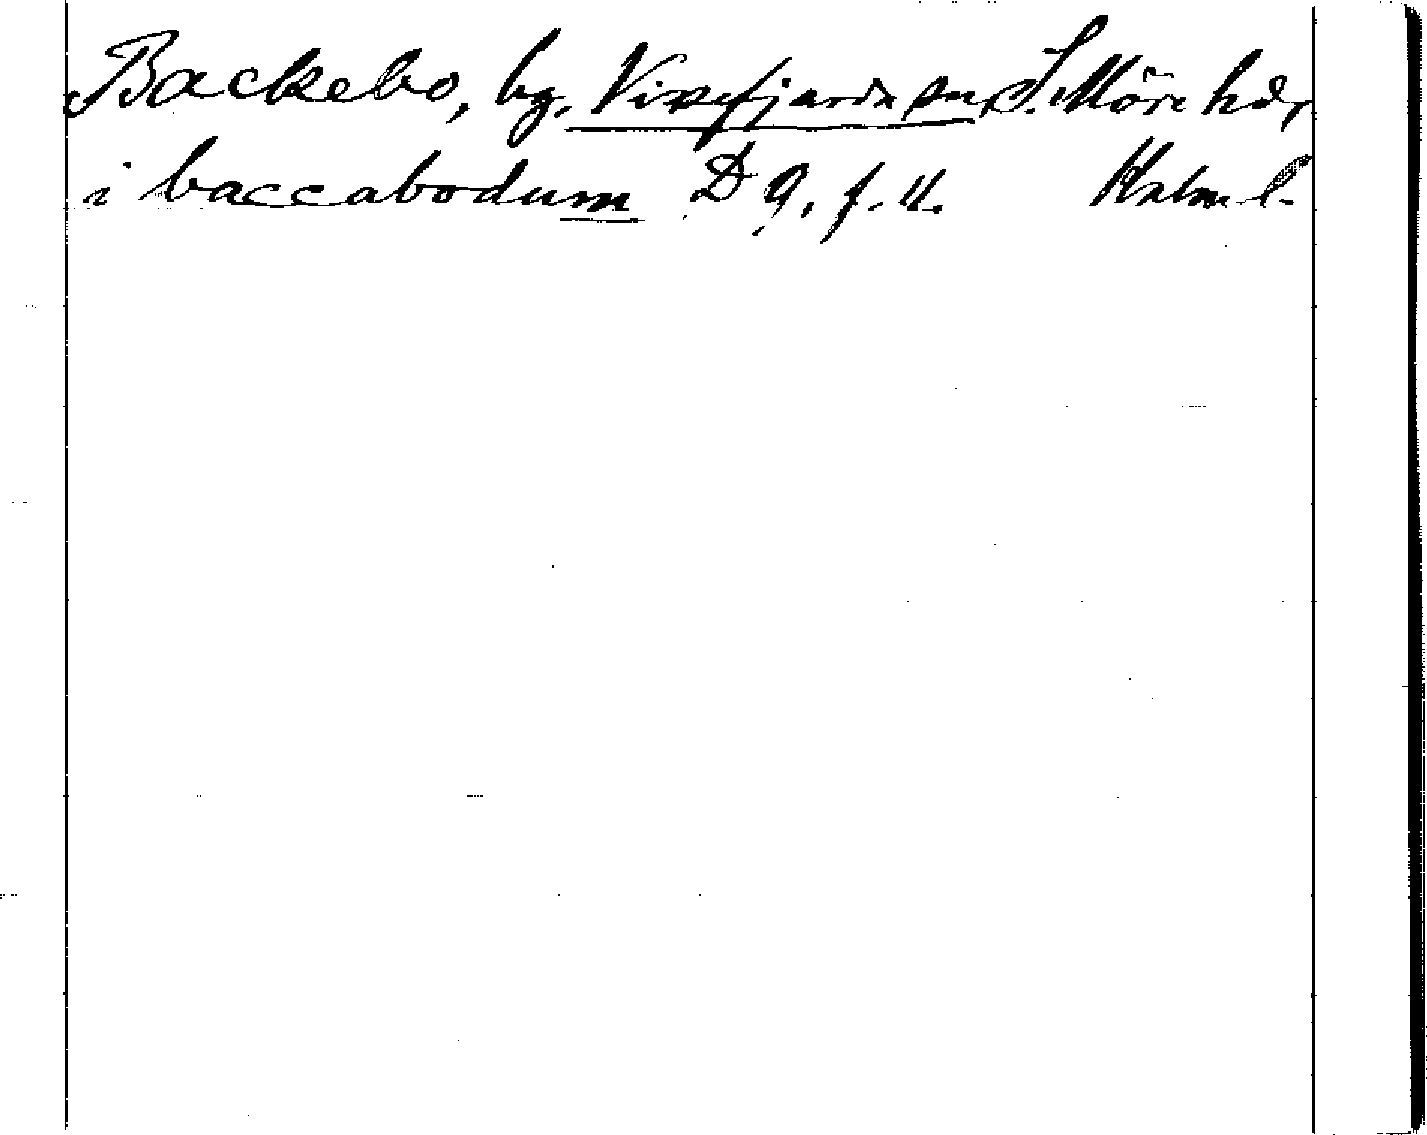 Backebo, by, Vissefjärda sn, S. Möre hd,
i baccabodum D 9, f. 11. Kalm. l.